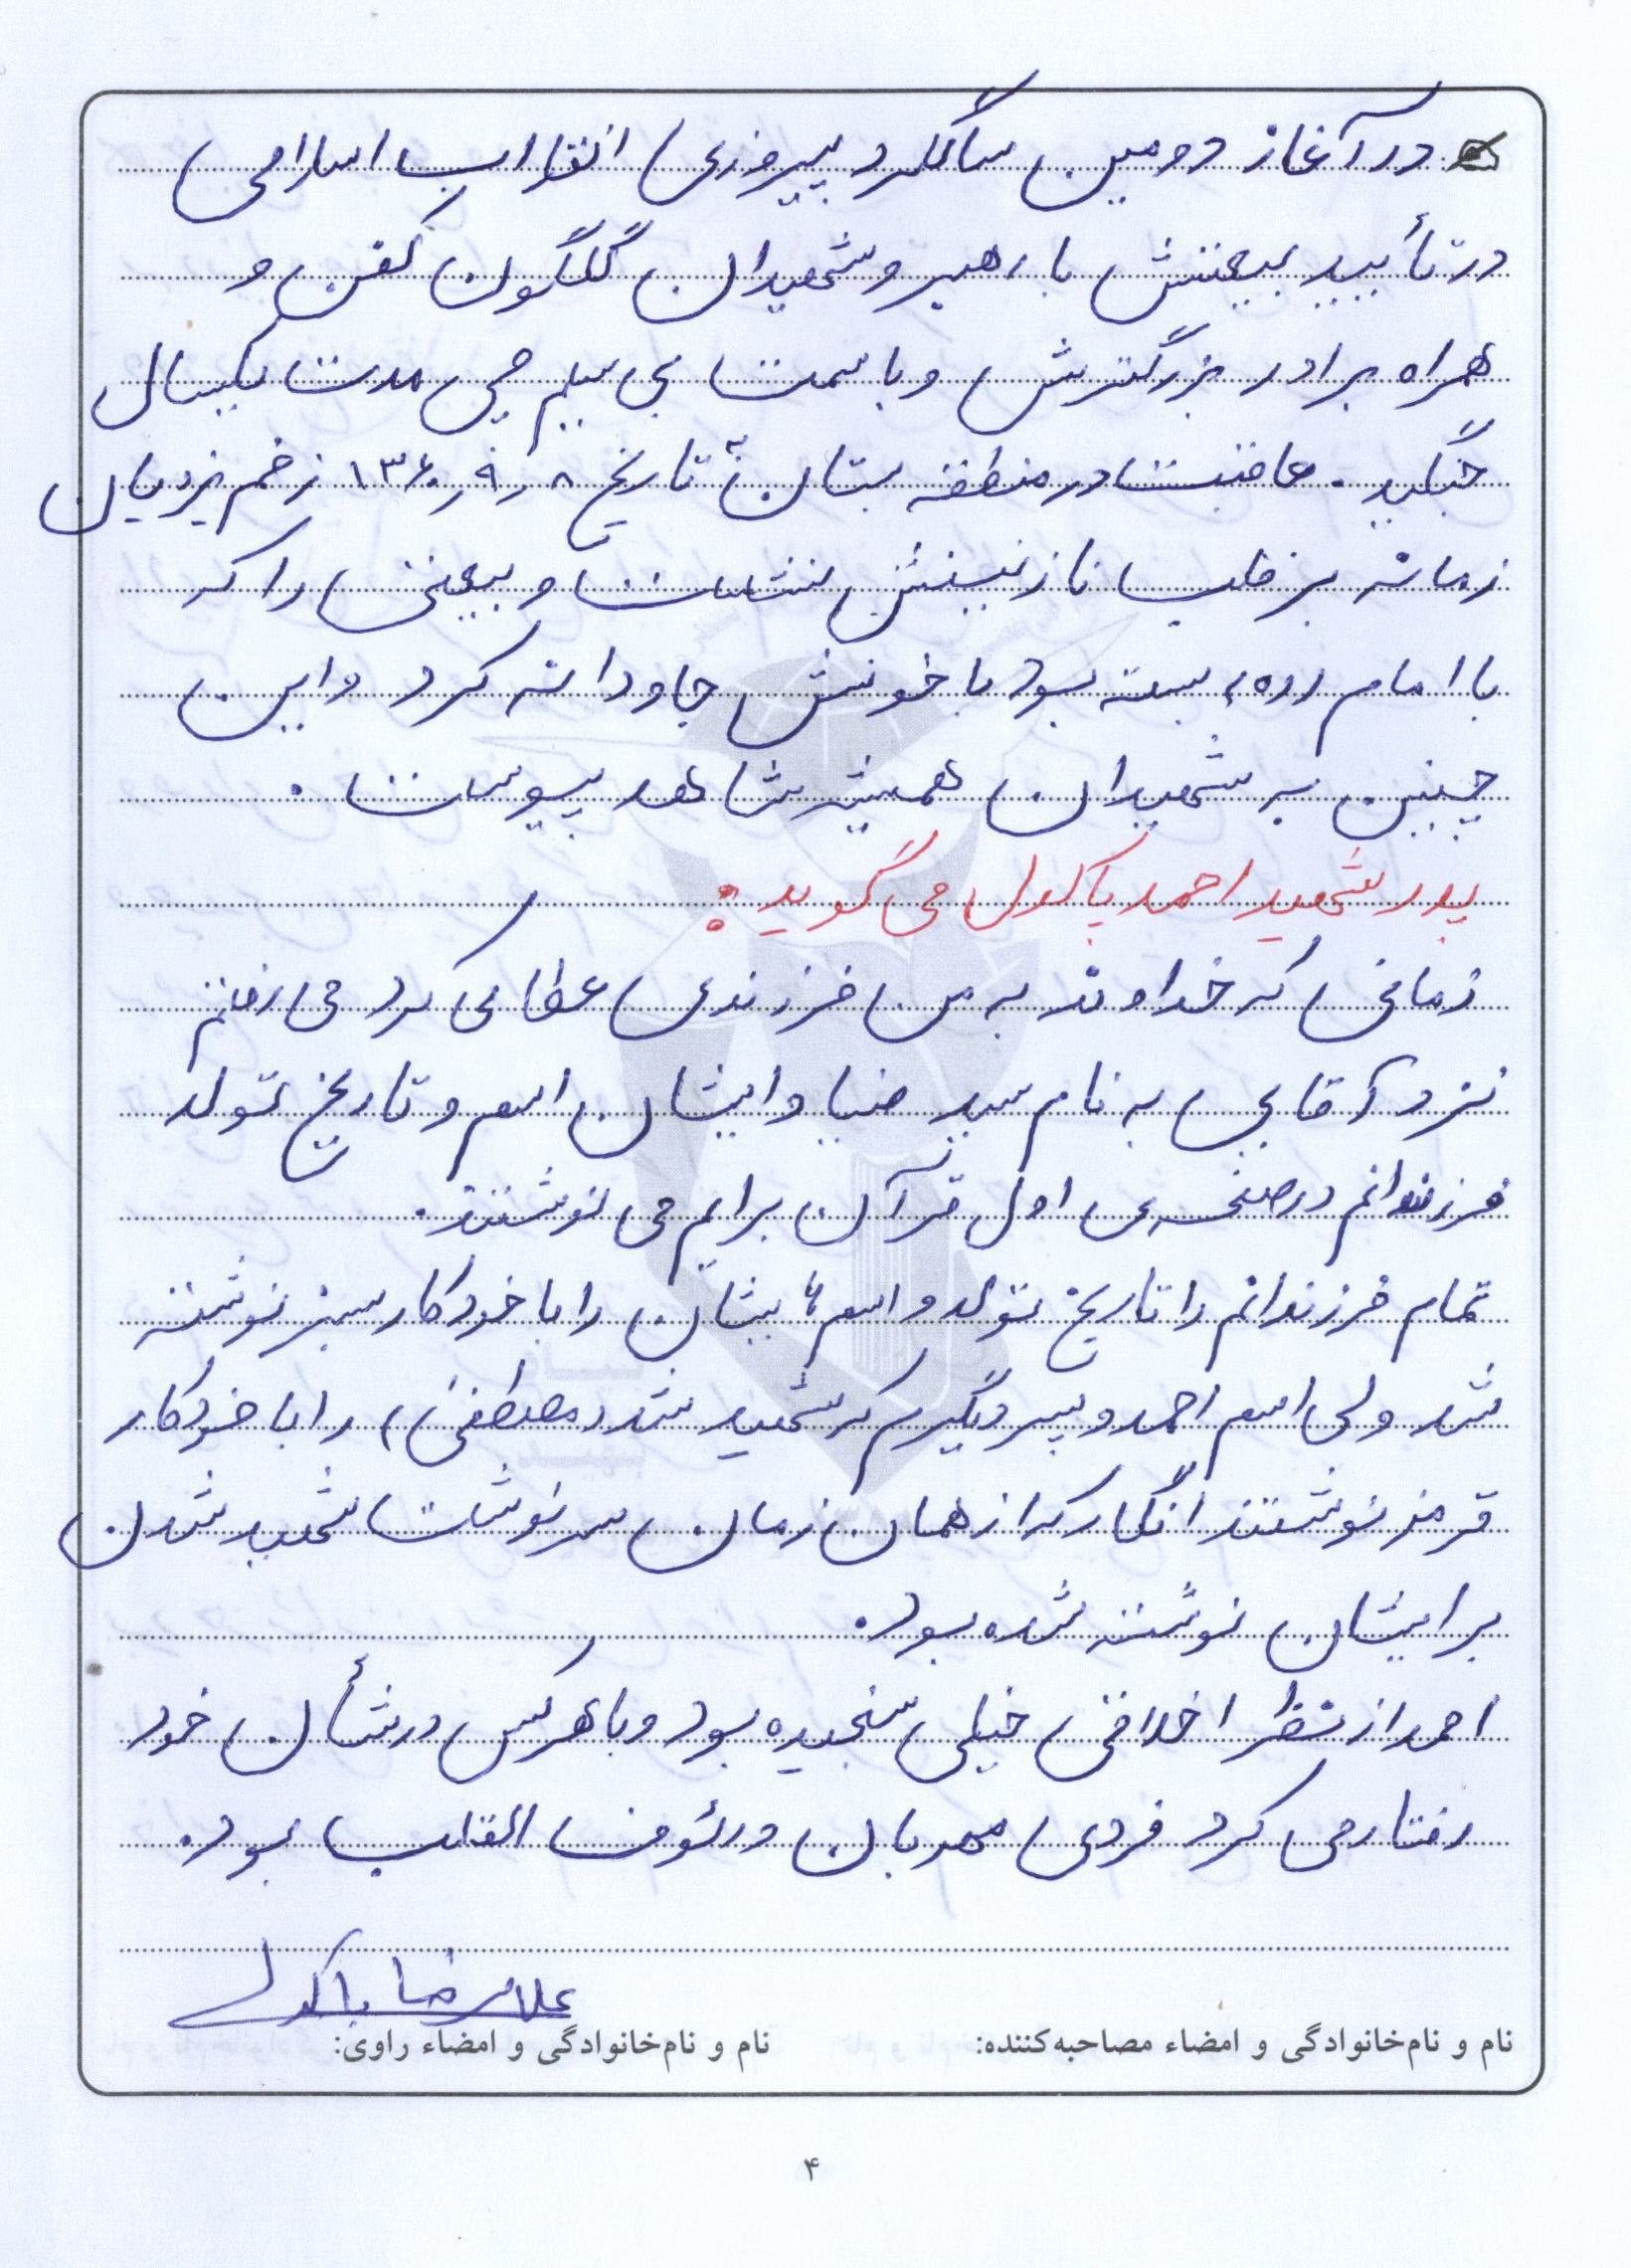 در آغاز دومین سالگرد پیروزی انقلاب اسلامی
در تأیید بیعتش با رهبر و شهیدان گلگون کفن و
همراه برادر بزرگترش و با سمت بی سیم چی مدت یکسال
جنگید. عاقبت در منطقه بستان تاریخ ۱۳۶۰٫۹٫۸ زخم یزدیان
زمانه بر قلب نازنینش نشست و بیعتی را که
با امام (ره) بسته بود با خونش جاودانه کرد و این
چنین به شهیدان همیشه شاهد پیوست.
پدر شهید احمد باکول می گوید:
زمانی که خداوند به من فرزندی عطا می کرد می رفتم
نزد آقایی به نام سید ضیا و ایشان اسم و تاریخ تولد
فرزندانم در صفحه ی اول قرآن برایم می نوشتند.
تمام فرزندانم را تاریخ تولد و اسم هایشان را با خودکار سبز نوشته
شد ولی اسم احمد و پسر دیگرم که شهید شد (مصطفی) را با خودکار
قرمز نوشتند انگار که از همان زمان سرنوشت شهید شدن
برایشان نوشته شده بود.
احمد از نظر اخلاقی خیلی سنجیده بود و با هر کس در شأن خود
رفتار می کرد فردی مهربان و رئوف القلب بود.
نام و نام‌خانوادگی و امضاء مصاحبه‌کننده: نام و نام‌خانوادگی و امضاء راوی:
۴